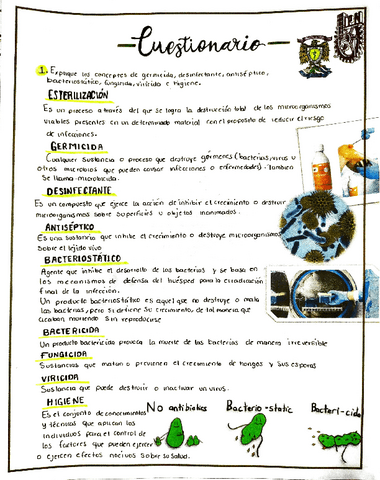 Cuestionario
1. Explique los conceptos de germicida, desinfectante, antiséptico,
bacteriostático, fungicida, viricida e higiene.
ESTERILIZACIÓN
Es un proceso a través del que se logra la destrucción total de los microorganismos
viables presentes en un determinado material con el propósito de reducir el riesgo
de infecciones.
GERMICIDA
Cualquier sustancia o proceso que destruye gérmenes (bacterias, virus u
otros microbios que pueden causar infecciones o enfermedades). También
se llama microbicida.
DESINFECTANTE
Es un compuesto que ejerce la acción de inhibir el crecimiento o destruir
microorganismos sobre superficies u objetos inanimados.
ANTISÉPTICO
Es una sustancia que inhibe el crecimiento o destruye microorganismos
sobre el tejido vivo
BACTERIOSTÁTICO
Agente que inhibe el desarrollo de las bacterias y se basa en
los mecanismos de defensa del huésped para la erradicación
final de la infección.
Un producto bacteriostático es aquel que no destruye o mata
las bacterias, pero si detiene su crecimiento, de tal manera que
acaban muriendo sin reproducirse
BACTERICIDA
Un producto bactericida provoca la muerte de las bacterias de manera irreversible
FUNGICIDA
Sustancias que matan o previenen el crecimiento de hongos y sus esporas
VIRICIDA
Sustancia que puede destruir o inactivar un virus.
HIGIENE
Es el conjunto de conocimientos
y técnicas que aplican los
individuos para el control de
los factores que pueden ejercer
o ejercen efectos nocivos sobre su salud.
No antibiotics
Bacterio-static
Bacteri-cida